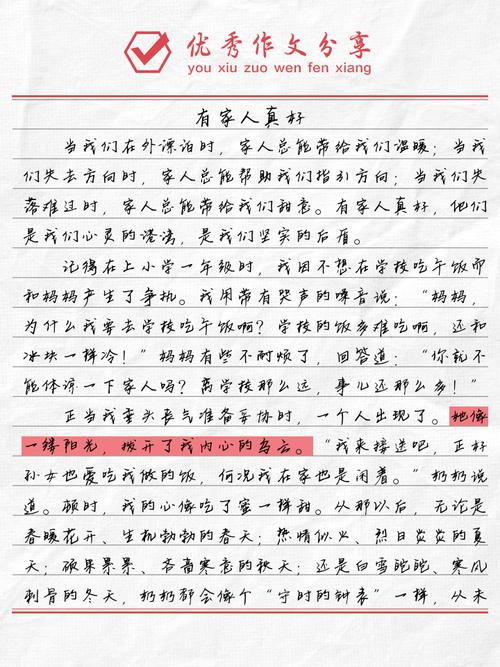 优秀作文分享
you xiu zuo wen fen xiang
有家人真好
当我们在外漂泊时，家人总能带给我们温暖；当我
们失去方向时，家人总能帮助我们指引方向；当我们失
落难过时，家人总能带给我们甜意。有家人真好，他们
是我们心灵的港湾，是我们坚实的后盾。
记得在上小学一年级时，我因不想在学校吃午饭而
和妈妈产生了争执。我用带有哭声的嗓音说：“妈妈，
为什么我要去学校吃午饭啊？学校的饭多难吃啊，还和
冰块一样冷！”妈妈有些不耐烦了，回答道：“你就不
能体谅一下家人吗？离学校那么远，事儿还那么多！”
正当我垂头丧气准备妥协时，一个人出现了。她像
一缕阳光，拨开了我内心的乌云。“我来接送吧，正好
孙女也爱吃我做的饭，何况我在家也是闲着。”奶奶说
道。顿时，我的心像吃了蜜一样甜。从那以后，无论是
春暖花开、生机勃勃的春天；热情似火、烈日炎炎的夏
天；硕果累累、吝啬寒意的秋天；还是白雪皑皑、寒风
刺骨的冬天，奶奶都会像个“守时的钟表”一样，从未